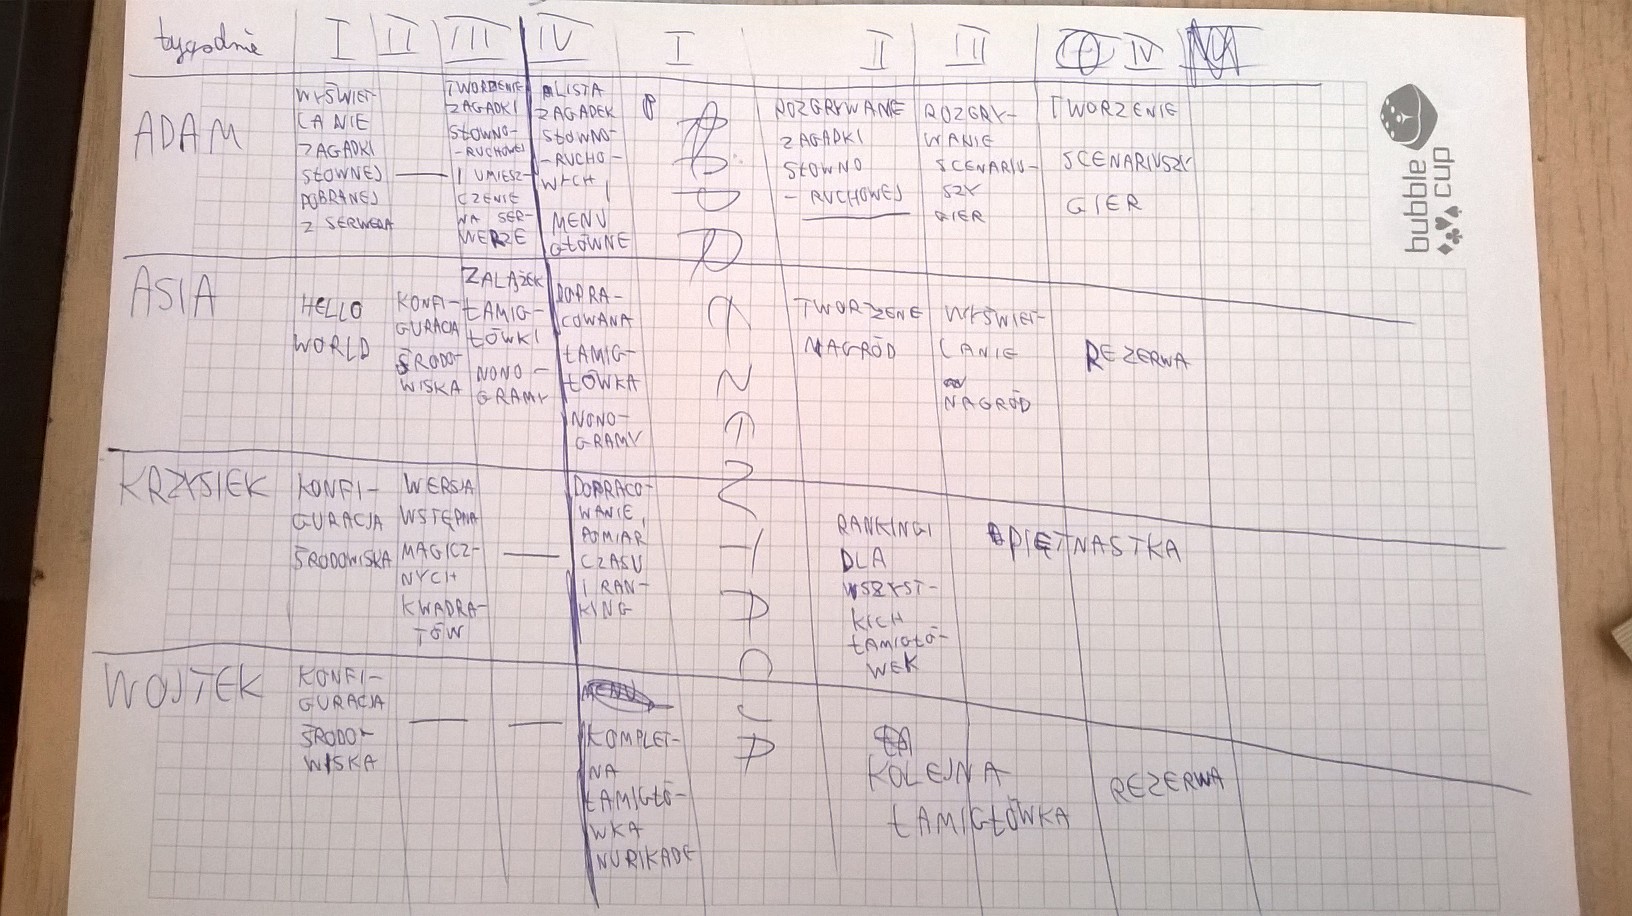 tygodnie I II III IV I II III IV
ADAM
WYŚWIET-
LANIE
ZAGADKI
SŁOWNEJ
POBRANEJ
Z SERWERA
TWORZENIE
ZAGADKI
SŁOWNO-
-RUCHOWEJ
I UMIESZ-
CZENIE
NA SER-
WERZE
LISTA
ZAGADEK
SŁOWNO-
-RUCHO-
WYCH,
MENU
GŁÓWNE
ROZGRYWANIE
ZAGADKI
SŁOWNO
- RUCHOWEJ
ROZGRY-
WANIE
SCENARIU-
SZY
GIER
TWORZENIE
SCENARIUSZY
GIER
ASIA
HELLO
WORLD
KONFI-
GURACJA
ŚRODO-
WISKA
ZALĄŻEK
ŁAMIG-
ŁÓWKI
NONO-
GRAMY
DOPRA-
COWANA
ŁAMIG-
ŁÓWKA
NONO-
GRAMY
TWORZENE
NAGRÓD
WYŚWIET-
LANIE
NAGRÓD
REZERWA
KRZYSIEK
KONFI-
GURACJA
ŚRODOWISKA
WERSJA
WSTĘPNA
MAGICZ-
NYCH
KWADRA-
TÓW
DOPRACO-
WANIE,
POMIAR
CZASU
I RAN-
KING
RANKINGI
DLA
WSZYST-
KICH
ŁAMIGŁÓ-
WEK
PIĘTNASTKA
WOJTEK
KONFI-
GURACJA
ŚRODO-
WISKA
KOMPLET-
NA
ŁAMIGŁÓ-
WKA
NURIKADE
KOLEJNA
ŁAMIGŁÓWKA
REZERWA
bubble
cup